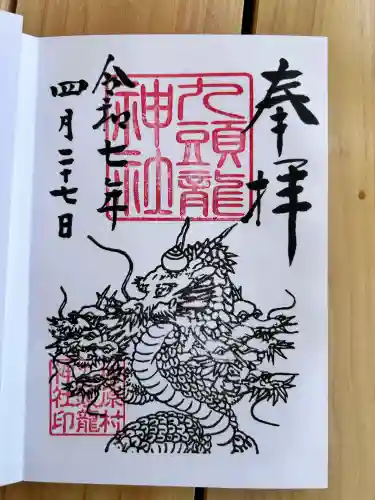 奉拝
九頭龍
神社
令和七年
四月二十七日